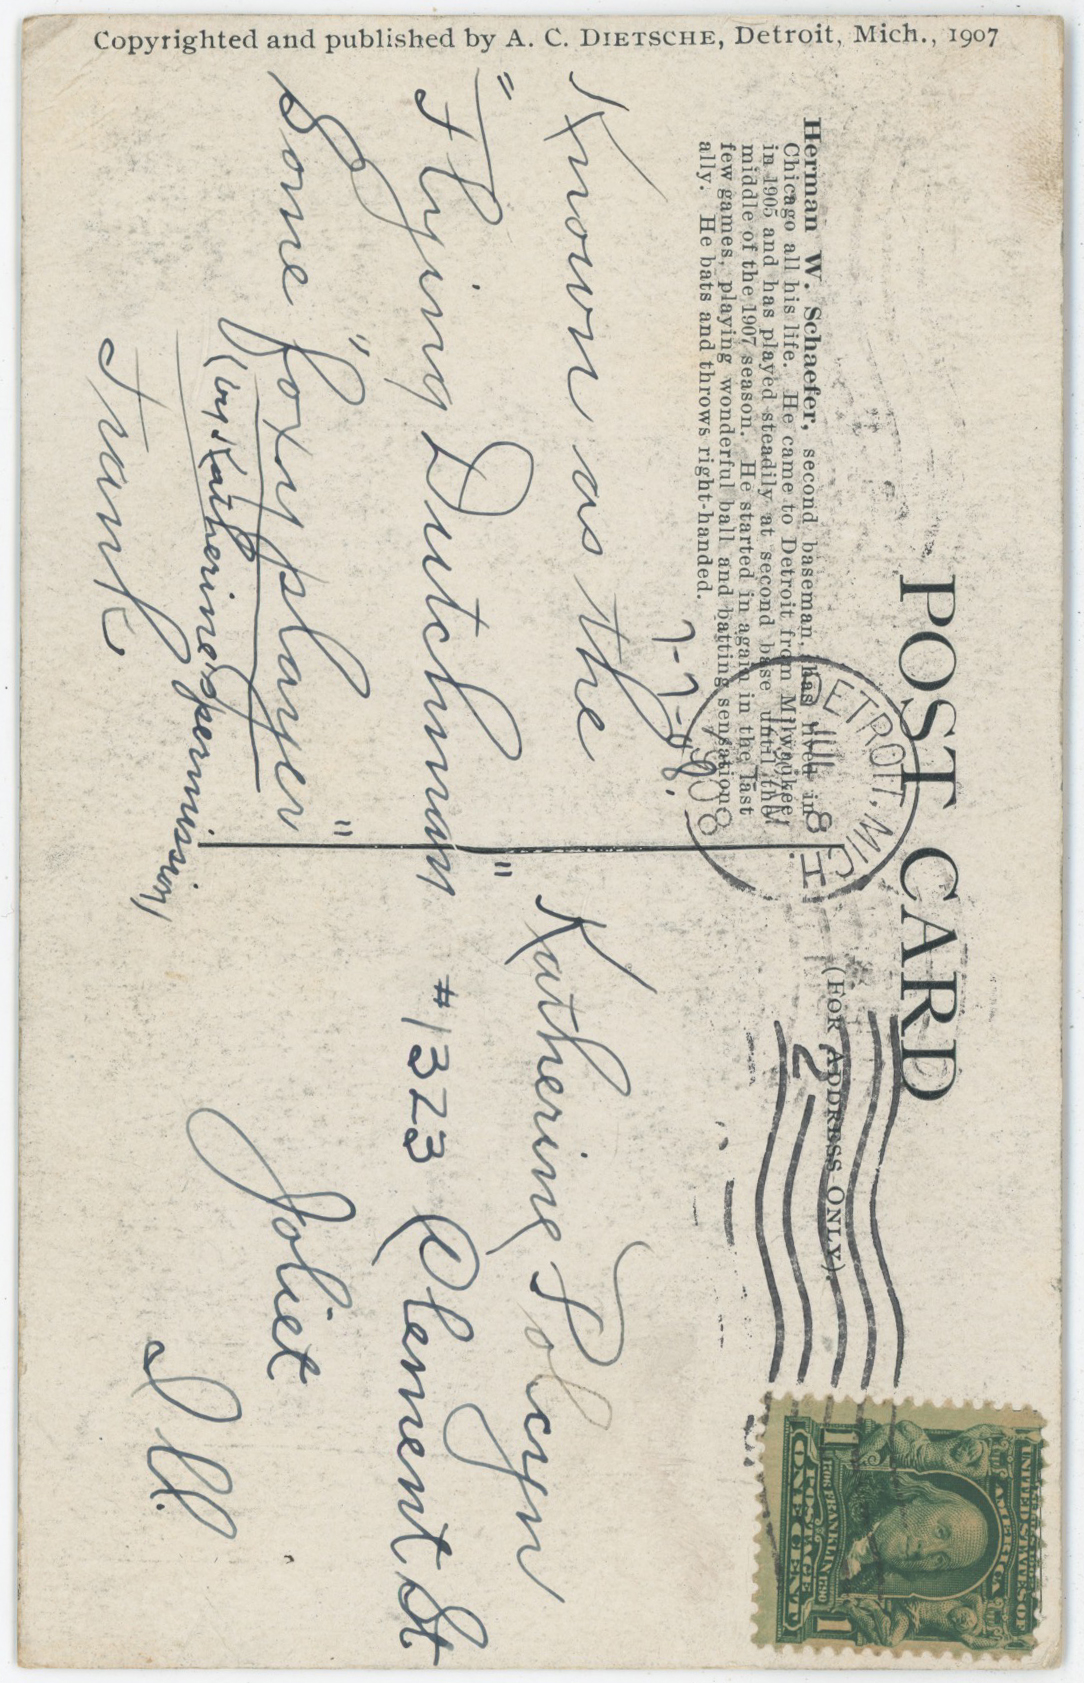 Copyrighted and published by A. C. DIETSCHE, Detroit, Mich., 1907
POST CARD
(FOR ADDRESS ONLY)
Herman W. Schaefer, second baseman, has lived in
Chicago all his life. He came to Detroit from Milwaukee
in 1905 and has played steadily at second base until the
middle of the 1907 season. He started in again in the last
few games, playing wonderful ball and batting sensation-
ally. He bats and throws right-handed.
DETROIT, MICH.
JUL 8
1908
2
7-7-08.
Known as the
"Flying Dutchman"
"Some foxy player"
(by Katherine's permission)
Frank
Katherine
#1323 Clement St.
Joliet
Ill.
UNITED STATES OF
AMERICA
1706 FRANKLIN 1790
POSTAGE
1 ONE CENT 1